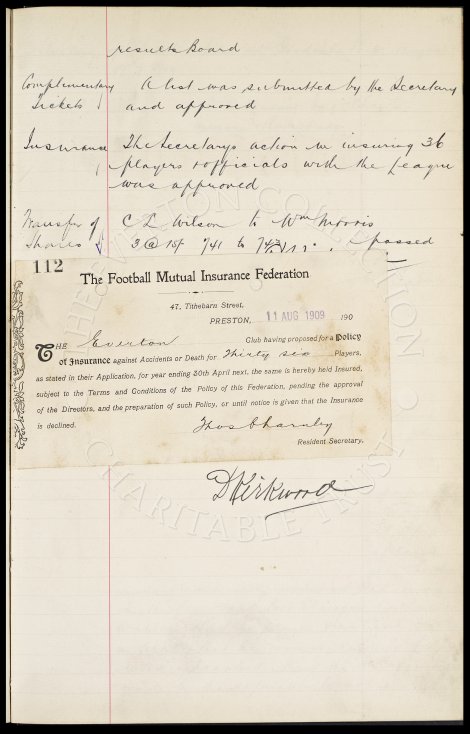 results Board
Complimentary Tickets A list was submitted by the Secretary
and approved
Insurance The Secretarys action in insuring 36
players & officials with the League
was approved
Transfer of Shares C L Wilson to Wm Morris
3 @ 15/- 741 to 743 passed
112
The Football Mutual Insurance Federation
47, Tithebarn Street,
PRESTON, 11 AUG 1909 190
THE Everton Club having proposed for a Policy
of Insurance against Accidents or Death for Thirty six Players,
as stated in their Application, for year ending 30th April next, the same is hereby held Insured,
subject to the Terms and Conditions of the Policy of this Federation, pending the approval
of the Directors, and the preparation of such Policy, or until notice is given that the Insurance
is declined.
Thos Charnley
Resident Secretary.
D Kirkwood
THE EVERTON COLLECTION
CHARITABLE TRUST